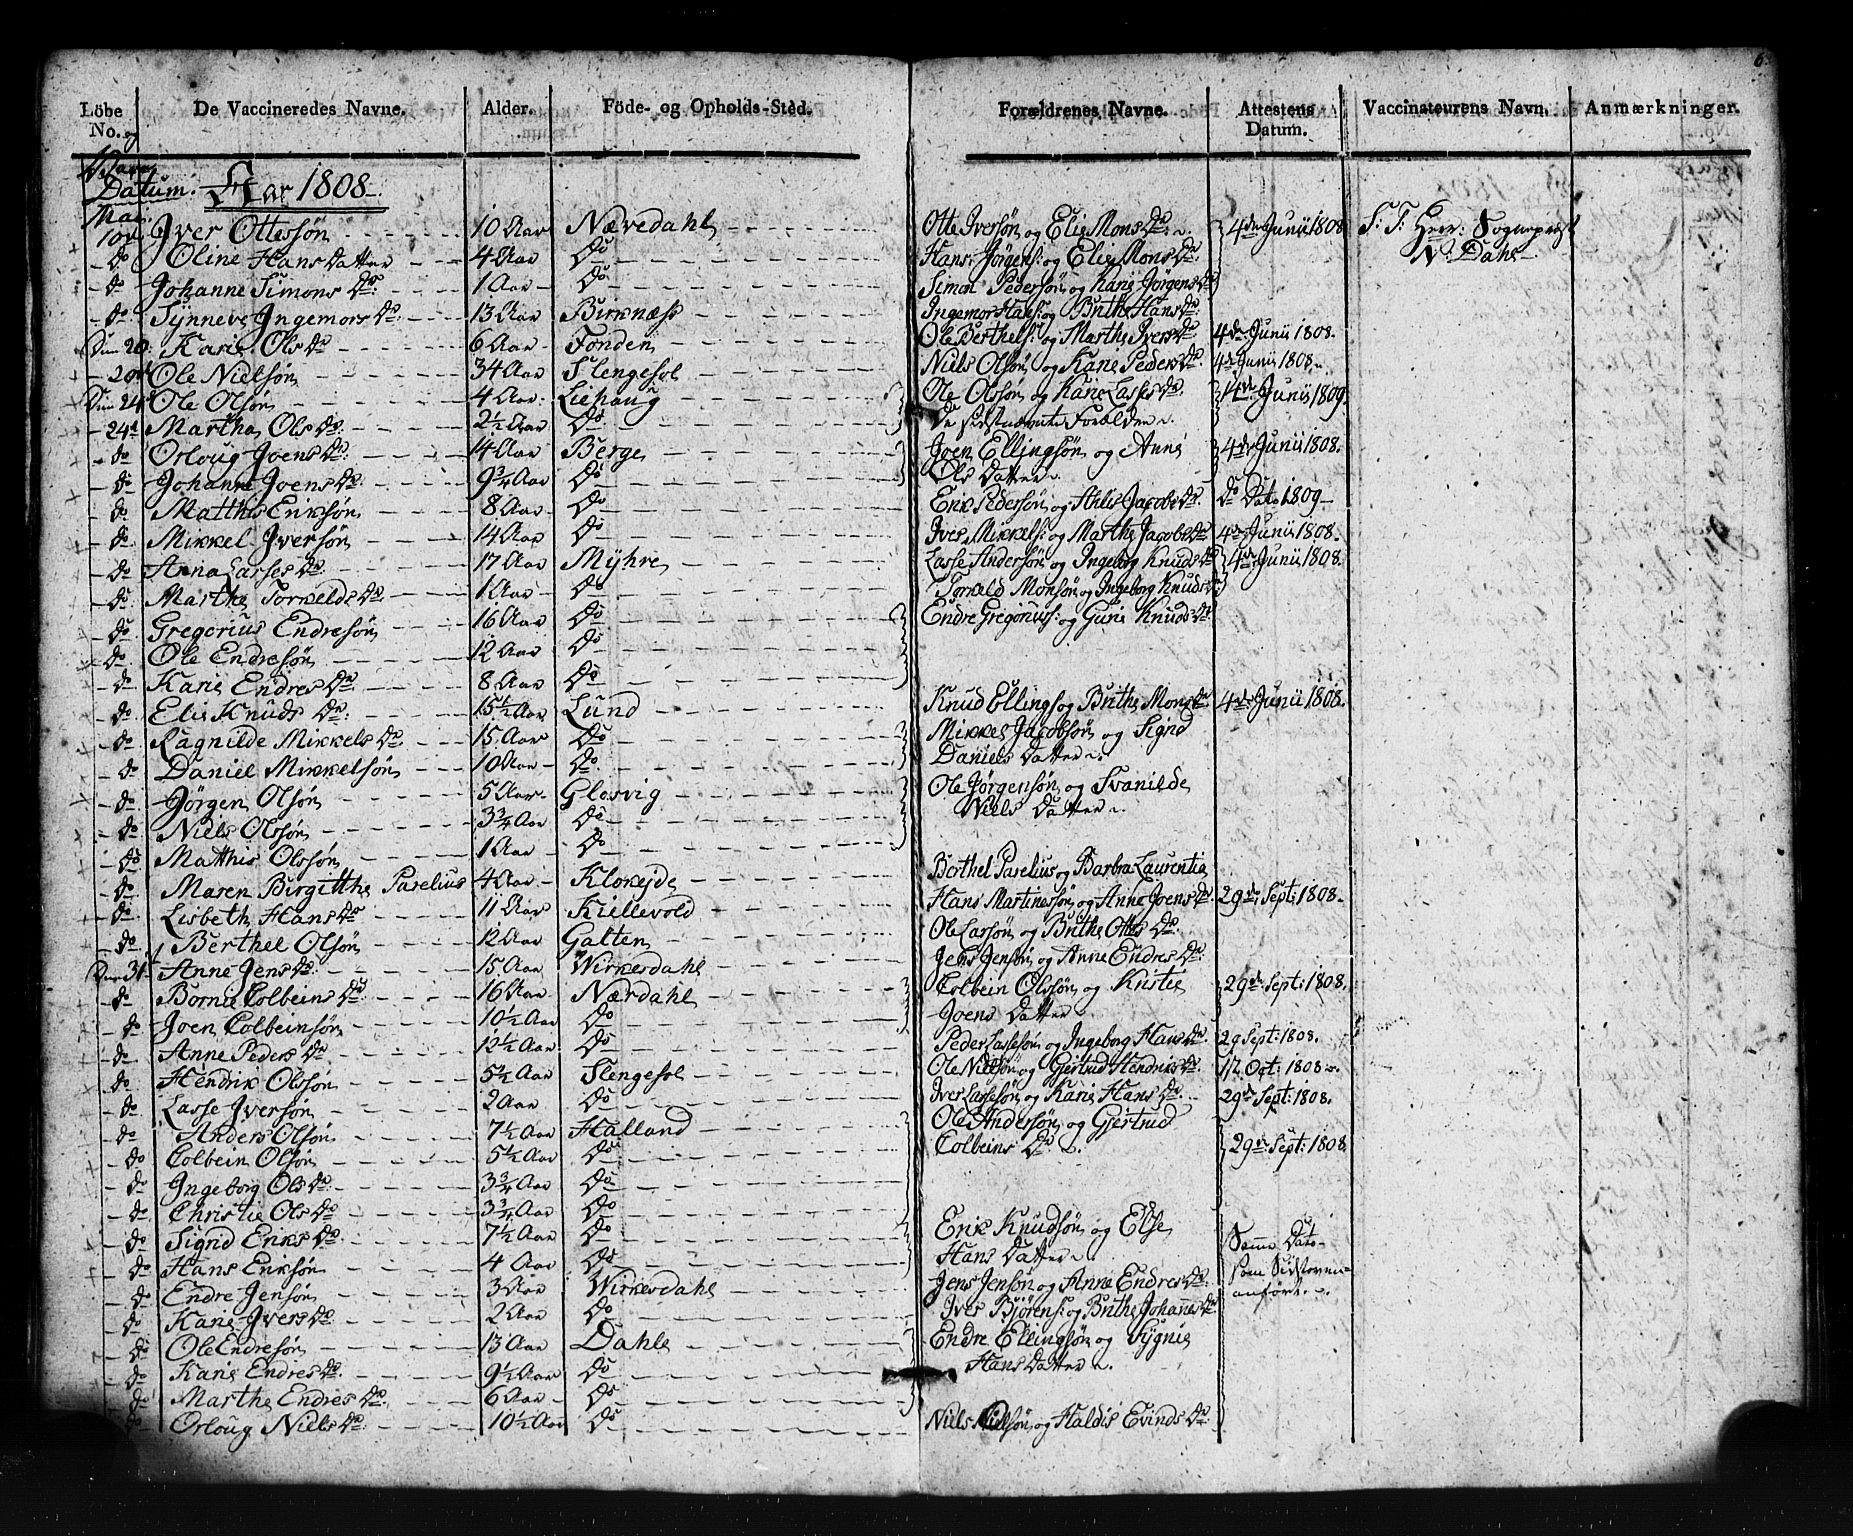 6
Löbe No. og De Vaccineredes Navne. Alder. Föde- og Opholds-Stèd. Forældrenes Navne. Attestens Datum. Vaccinateurens Navn. Anmærkninger.
Datum. Aar 1808.
Mai.
10de Jver Ottesön 10 Aar Nævedahl Otte Iversön og Elie Mons Dr. 4de Junii 1808 S. T. Herr Sogneprest
do Oline Hans Datter 4 Aar Do Hans Jörgens: og Elie Mons Dr. N. Dahl
do Johanne Simons Dr. 1 Aar Do Simon Pedersön og Karie Jörgens Dr
do Synneve Ingemors Dr. 13 Aar Birknæss Ingemor Hans: og Brithe Hans Dr
Dnn 20 Karie Ols Dr 6 Aar Fonden Ole Berthels: og Marthe Ivers Dr 4de Junii 1808.
20de Ole Nielsön 34 Aar Slengesol Niels Olsön og Karie Peders Dr. 4de Junii 1808.
Dnn 24 Ole Olsön 4 Aar Liehaug Ole Olsön og Karie Lasses Dr. 4de Junii 1809.
24d Martha Ols Dr. 2½ Aar Do De sidstnævnte Forældre
do Orloug Joens Dr. 14 Aar Berge Joen Ellingsön og Anne 4de Junii 1808.
do Johanne Joens Dr. 9¾ Aar Do Ols Datter
do Matthis Eriksön 8 Aar Do Erik Pedersön og Ahlis Jacobs Dr Do Dato 1809
do Mikkel Jversön 14 Aar Do Iver Mikkels: og Marthe Jacobs Dr 4de Junii 1808.
do Anna Lasses Dr. 17 Aar Myhre Lasse Andersön og Ingeborg Knuds Dr 4de Junii 1808.
do Marthe Torkelds Dr. 1 Aar Do Torkeld Monsön og Ingeborg Knuds Dr
do Gregorius Endresön 16 Aar Do Endre Gregoriuss: og Guri Knuds Dr
do Ole Endresön 12 Aar Do
do Karie Endres Dr. 8 Aar Do
do Elie Knuds Dr. 15½ Aar Lund Knud Ellings og Brithe Mons Dr 4de Junii 1808.
do Ragnilde Mikkels Dr 15 Aar Do Mikkel Jacobsön og Sigrid
do Daniel Mikkelsön 10 Aar Do Daniels Datter
do Jörgen Olsön 5 Aar Glosvig Ole Jörgensön og Svanilde
do Niels Olssön 3¾ Aar Do Niels Datter
do Matthis Olssön 1 Aar Do
do Maren Birgitthe Parelius 4 Aar Klokejde Berthel Parelius og Barbra Laurentia
do Lisbeth Hans Dr 11 Aar Killevold Hans Martinesön og Anne Joens Dr 29de Sept: 1808.
do Berthel Olsön 12 Aar Galten Ole Larsön og Brithe Ottes Dr.
Dnn 31 Anne Jens Dr. 15 Aar Wirkesdahl Jens Jensön og Anne Endres Dr.
do Borni Colbeins Dr 16 Aar Nærdahl Colbein Olsön og Kristie 29de Sept: 1808.
do Joen Colbeinsön 10½ Aar Do Joens Datter
do Anne Peders Dr 12½ Aar Do Peder Lassesön og Ingeborg Hans Dr. 29 Sept: 1808.
do Hendrik Olssön 5½ Aar Slengesol Ole Nielsön og Gjertrud Hendriks Dr. 17 Oct: 1808
do Lasse Jversön 2 Aar Do Iver Lassesön og Karie Hans Dr. 29de Sept: 1808.
do Anders Olsön 7½ Aar Halland Ole Andersön og Gjertrud
do Colbein Olsön 5½ Aar Do Colbeins Dr. 29de Sept: 1808
do Ingeborg Ols Dr. 3¾ Aar Do
do Christie Ols Dr 3¾ Aar Do
do Sigrid Eriks Dr 7½ Aar Do Erik Knudsön og Else Samme Dato
do Hans Eriksön 4 Aar Do Hans Datter som Sidstoven-
do Endre Jensön 3 Aar Wirkesdahl Jens Jensön og Anne Endres Dr. anfört.
do Karie Jvers Dr 2 Aar Do Iver Björens: og Brithe Johannes Dr
do Ole Endresön 13 Aar Dahle Endre Ellingsön og Sygnie
do Karie Endres Dr. 9½ Aar Do Hans Datter
do Marthe Endres Dr. 6 Aar Do
do Orloug Niels Dr. 10½ Aar Do Niels Nielsön og Haldis Evinds Dr.